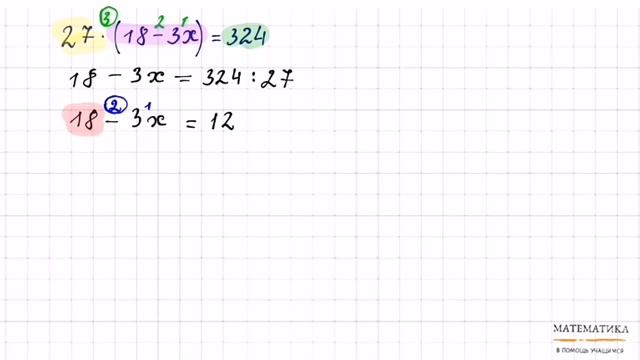 3 2 1
27 · (18 - 3x) = 324
18 - 3x = 324 : 27
2 1
18 - 3x = 12
МАТЕМАТИКА
В ПОМОЩЬ УЧАЩИМСЯ